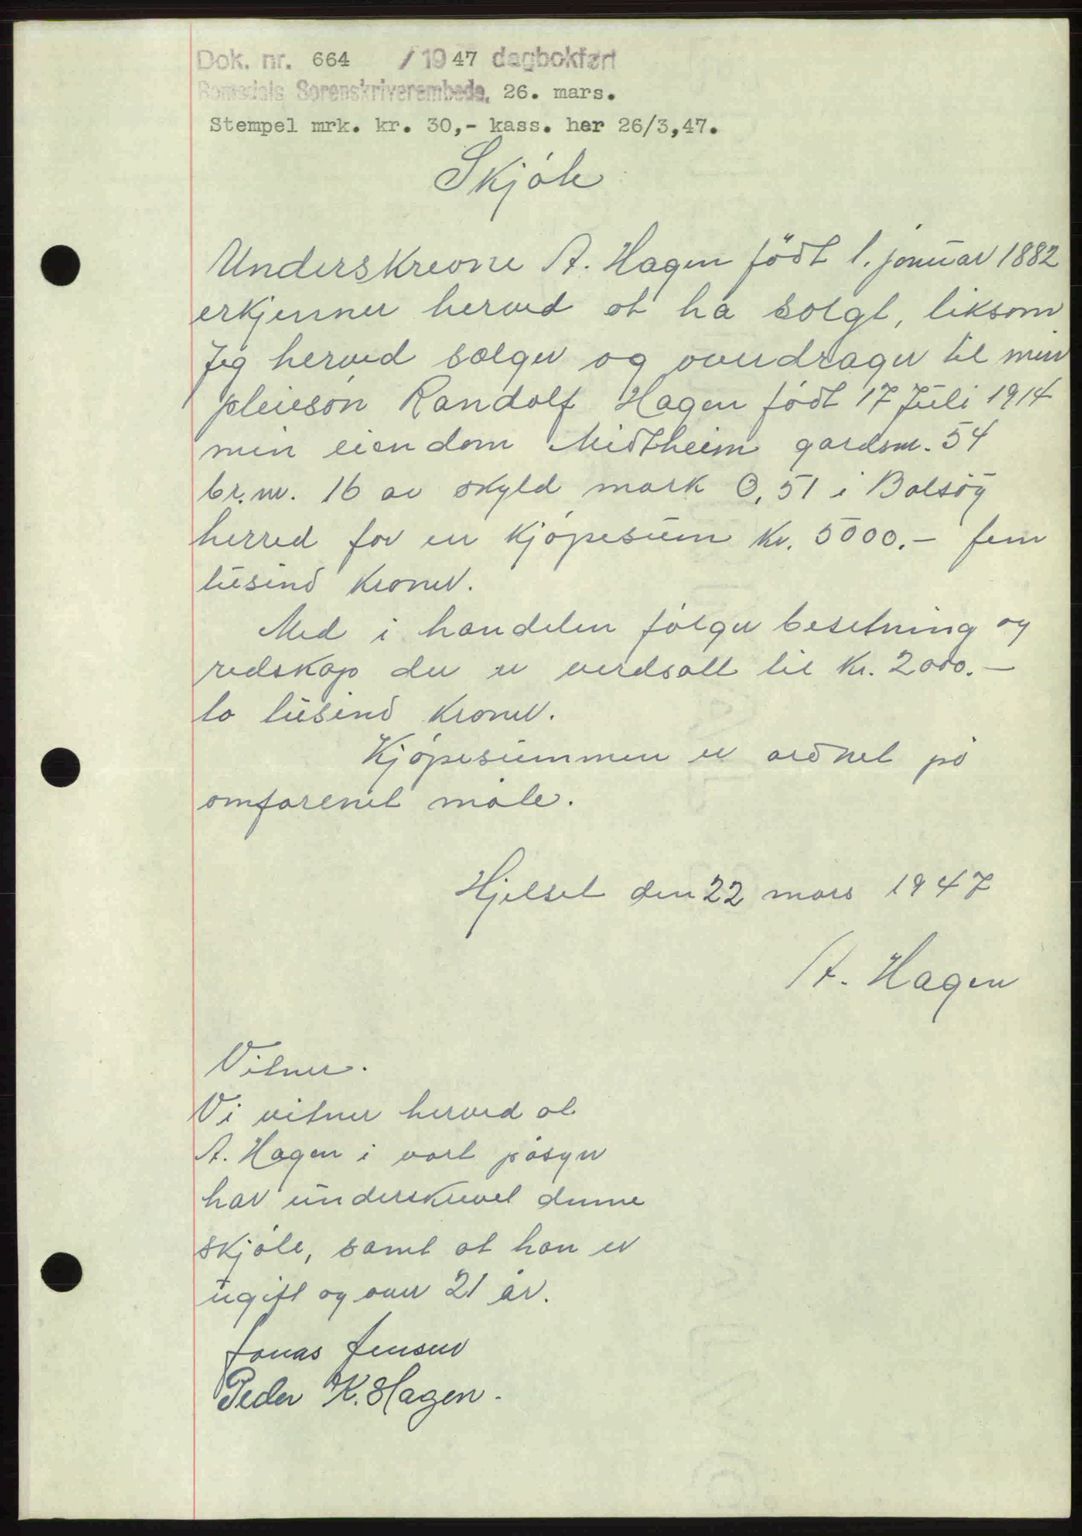 Dok. nr. 664 /1947 dagbokført
Romsdals Sorenskriverembede, 26. mars.
Stempel mrk. kr. 30,- kass. her 26/3,47.
Skjöte
Underskrevne A. Hagen födt 1. januar 1882
erkjenner herved at ha solgt, liksom
jeg herved sælger og overdrager til min
pleiesön Randolf Hagen födt 17 Juli 1914
min eiendom Midtheim gardsnr. 54
br.nr. 16 av skyld mark 0,51 i Bolsöy
herred for en kjöpesum kr. 5000.- fem
tusind kroner.
Med i handelen fölger besetning og
redskap der er verdsatt til kr. 2000.-
to tusind kroner.
Kjöpesummen er ordnet på
omforenet måte.
Hjelset den 22 mars 1947
A. Hagen
Vitner.
Vi vitner herved at
A. Hagen i vort påsyn
har underskrevet denne
skjöte, samt at han er
ugift og over 21 år.
Jonas Jensen
Peder K. Hagen.